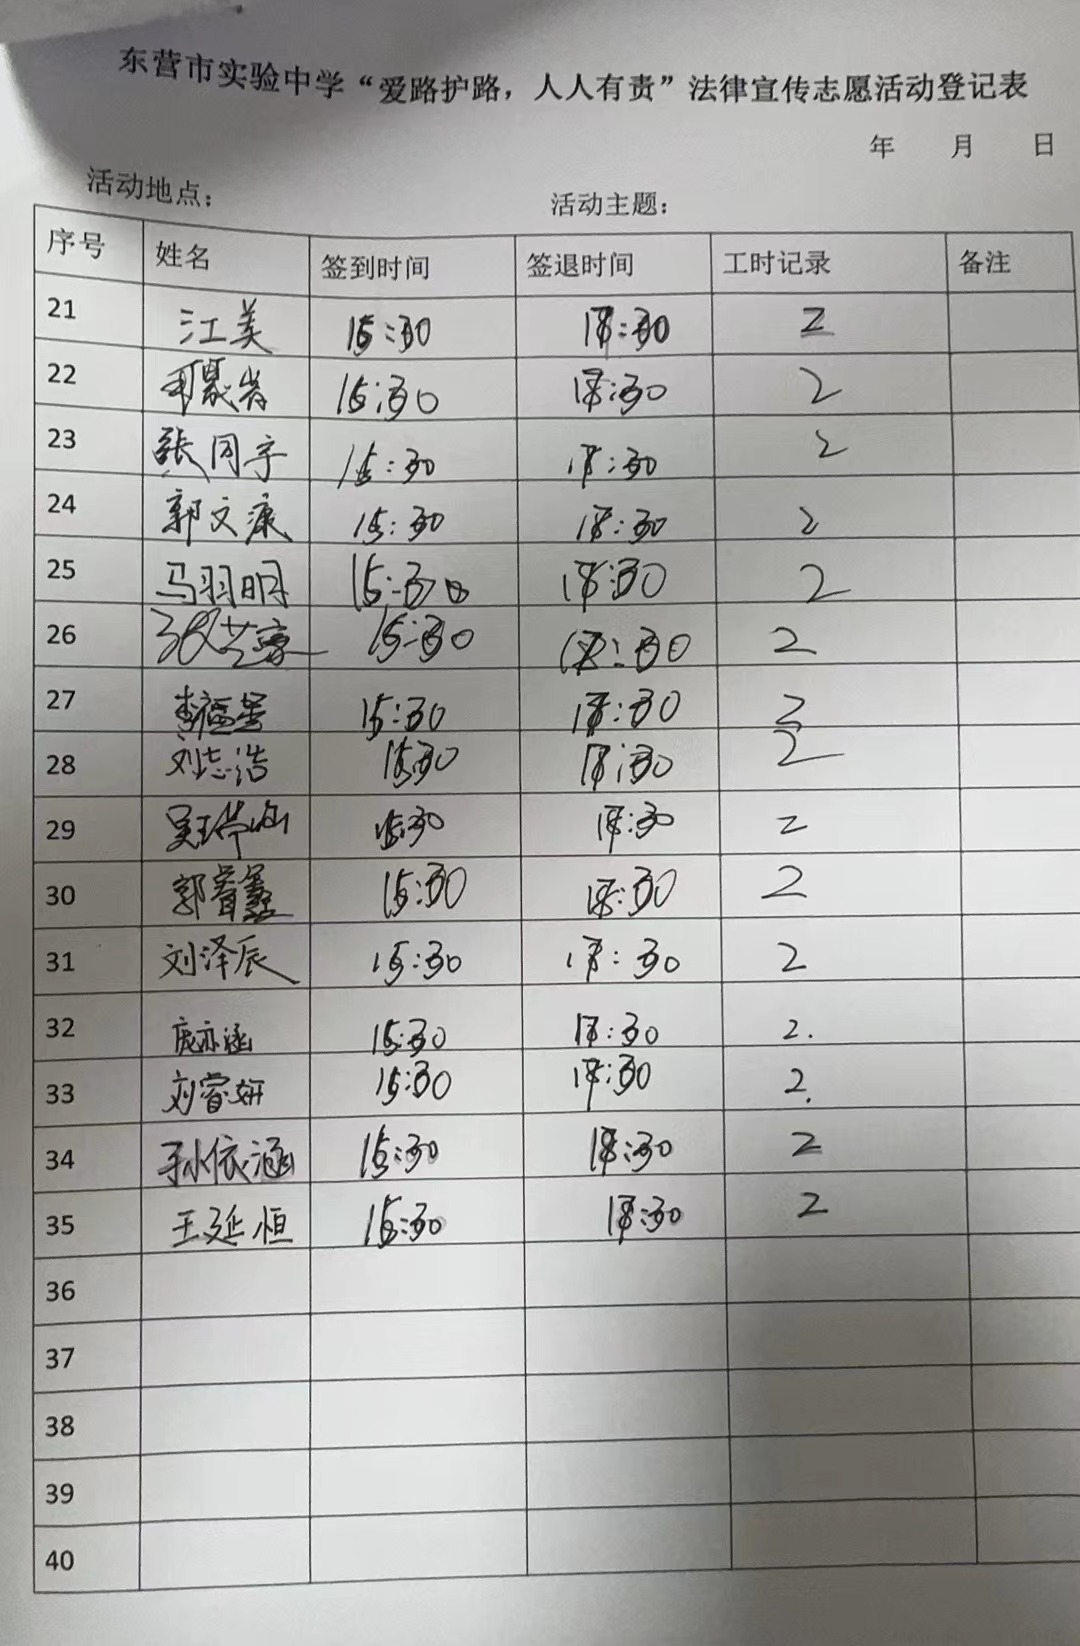 东营市实验中学“爱路护路，人人有责”法律宣传志愿活动登记表
年 月 日
活动地点： 活动主题：
序号 姓名 签到时间 签退时间 工时记录 备注
21 江美 15:30 :30 2
22 15:30 :30 2
23 张同宇 15:30 :30 2
24 郭文康 15:30 :30 2
25 马羽明 15:30 :30 2
26 张芝豪 15:30 :30 2
27 李福星 15:30 :30 2
28 刘志浩 15:30 :30 2
29 15:30 :30 2
30 郭睿鑫 15:30 :30 2
31 刘泽辰 15:30 :30 2
32 庞亦涵 15:30 :30 2.
33 刘睿妍 15:30 :30 2.
34 孙依涵 15:30 :30 2
35 王延恒 15:30 :30 2
36
37
38
39
40